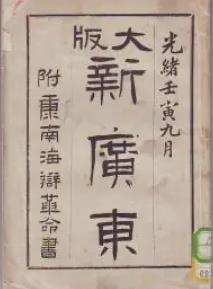 光緒壬寅九月
大版
新廣東
附康南海辯革命書